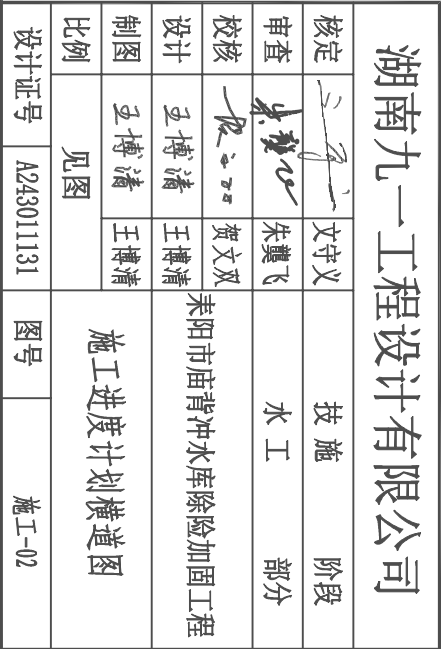 湖南九一工程设计有限公司
核定 文守义 技施 阶段
审查 朱龑飞 水工 部分
校核 贺文双 耒阳市庙背冲水库除险加固工程
设计 王博清 王博清
制图 王博清 王博清 施工进度计划横道图
比例 见图
设计证号 A243011131 图号 施工-02